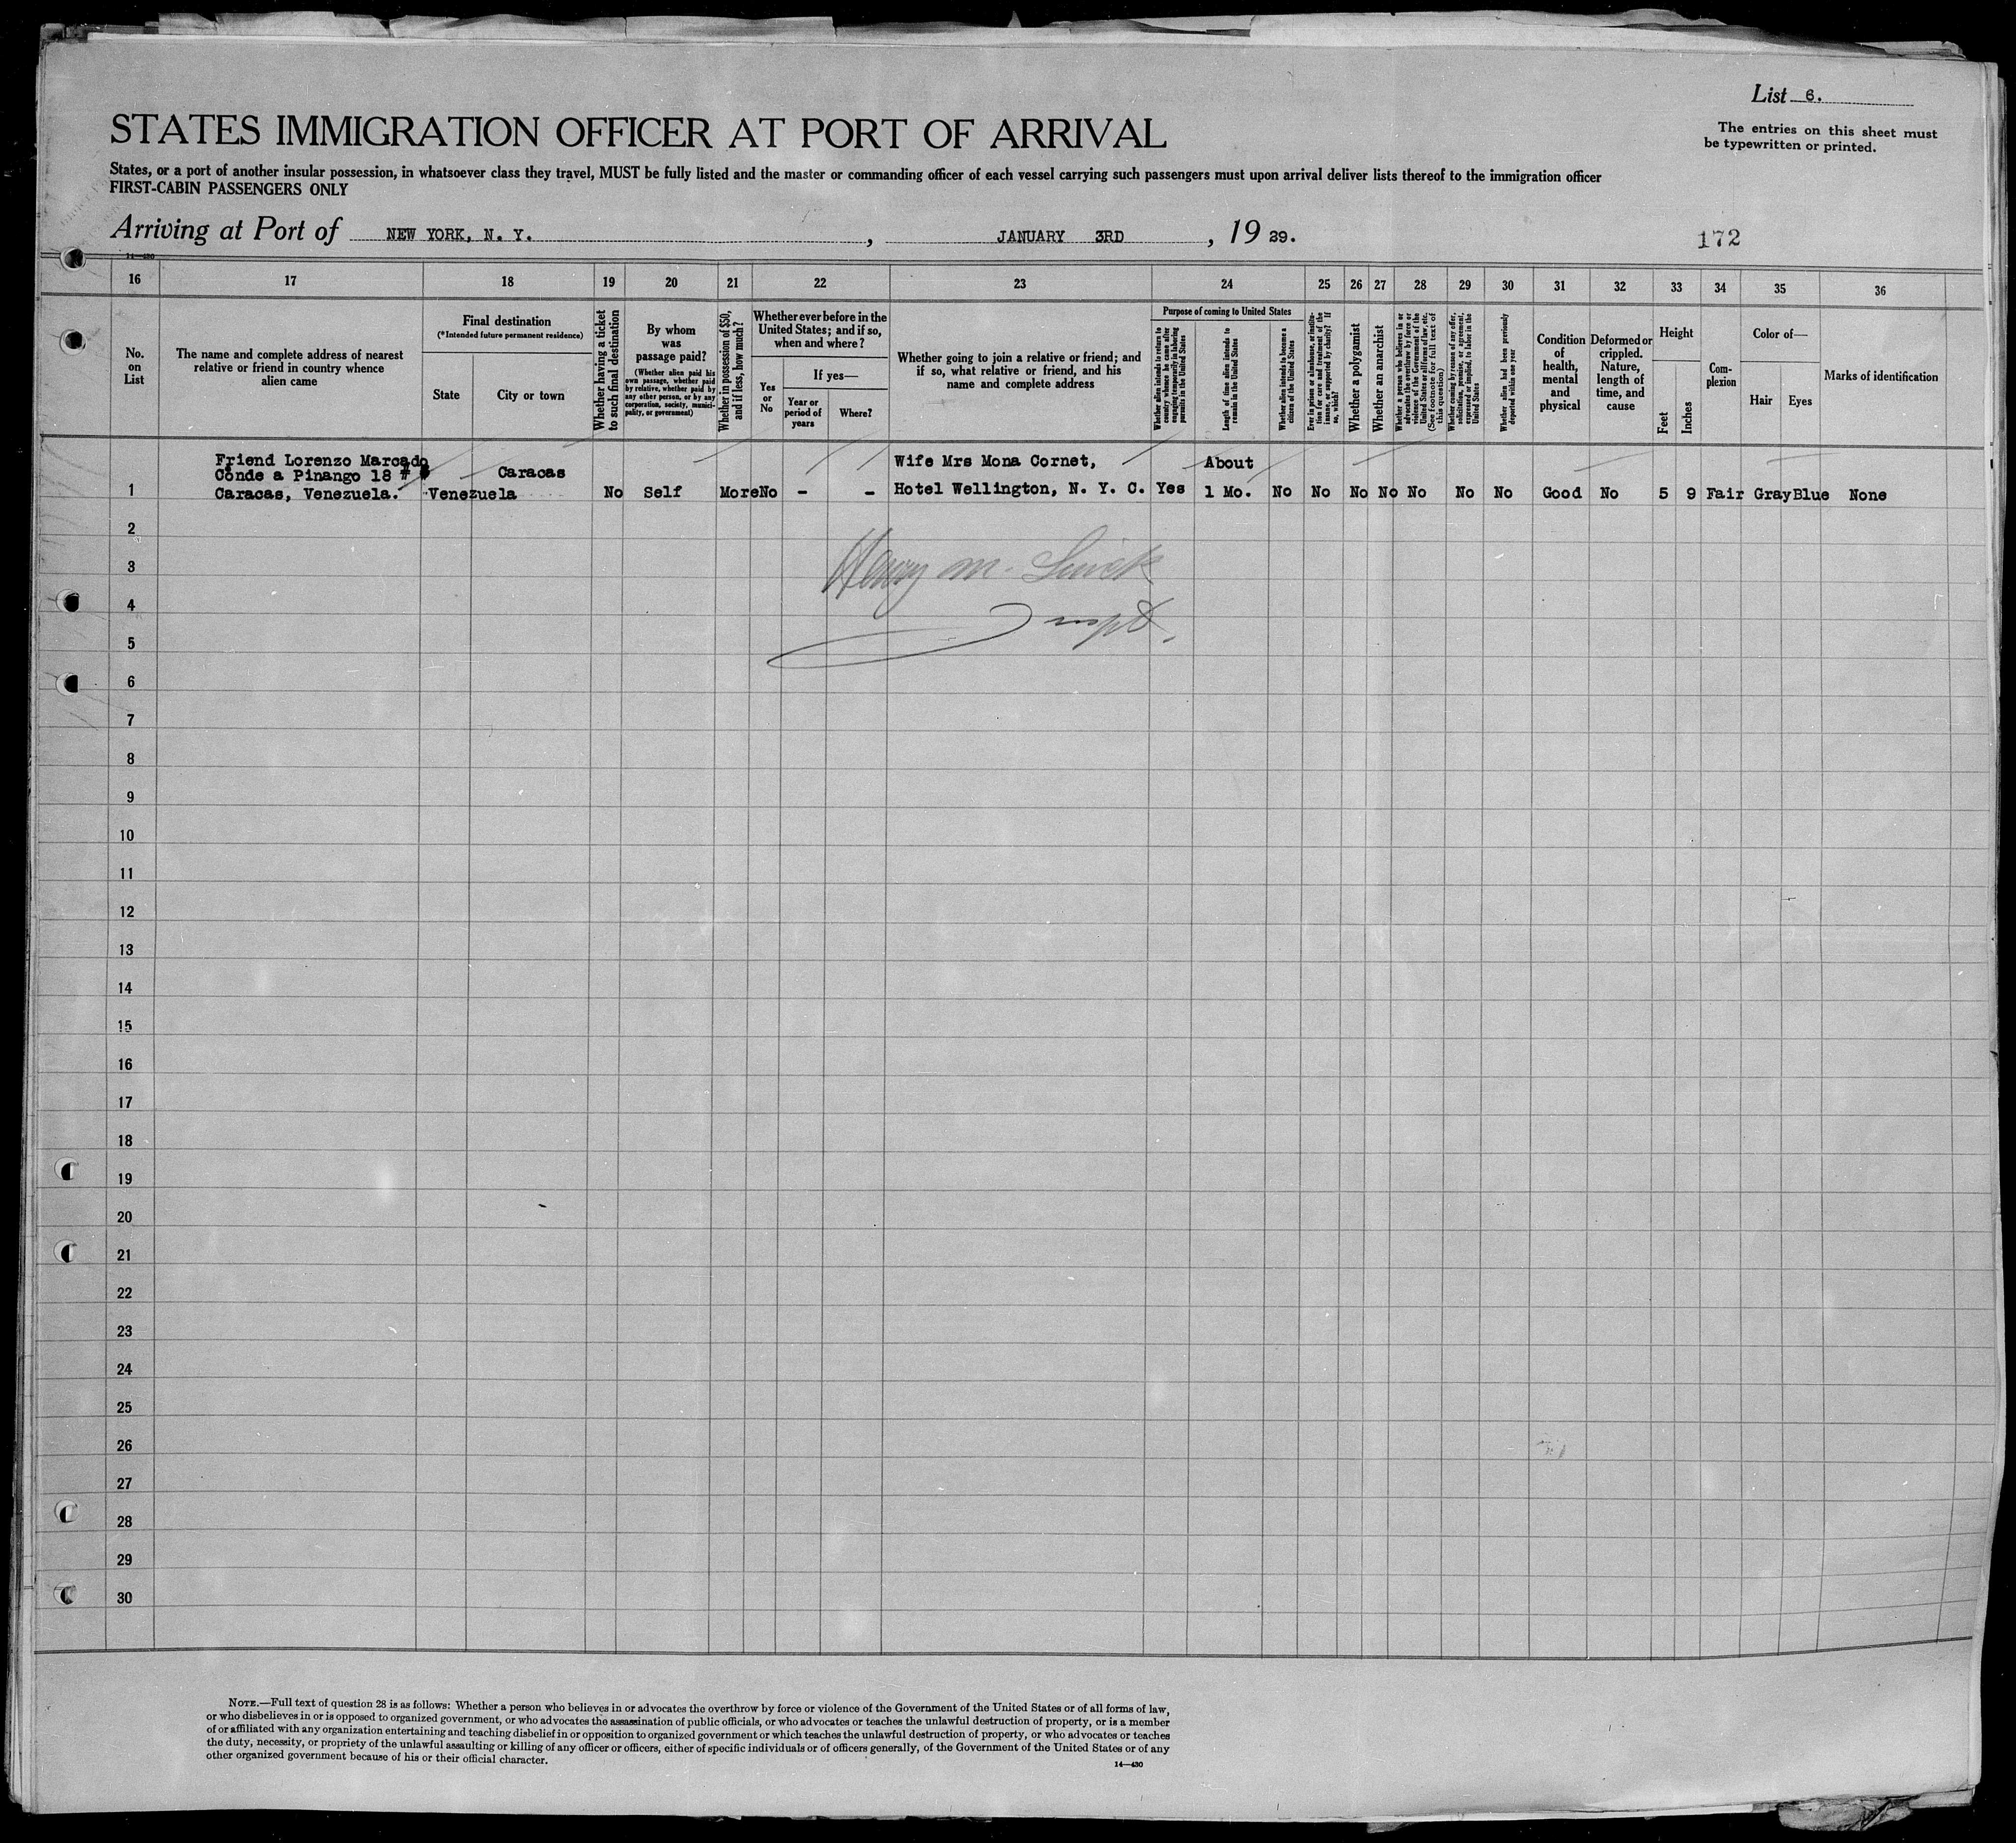 List 6.
The entries on this sheet must
be typewritten or printed.
STATES IMMIGRATION OFFICER AT PORT OF ARRIVAL
States, or a port of another insular possession, in whatsoever class they travel, MUST be fully listed and the master or commanding officer of each vessel carrying such passengers must upon arrival deliver lists thereof to the immigration officer
FIRST-CABIN PASSENGERS ONLY
Arriving at Port of NEW YORK, N. Y. , JANUARY 3RD , 19 29.
172
14—430
16 17 18 19 20 21 22 23 24 25 26 27 28 29 30 31 32 33 34 35 36
No.
on
List
The name and complete address of nearest
relative or friend in country whence
alien came
Final destination
(*Intended future permanent residence)
State
City or town
Whether having a ticket
to such final destination
By whom
was
passage paid?
(Whether alien paid his
own passage, whether paid
by relative, whether paid by
any other person, or by any
corporation, society, munici-
pality, or government)
Whether in possession of $50,
and if less, how much?
Whether ever before in the
United States; and if so,
when and where?
Yes
or
No
If yes—
Year or
period of
years
Where?
Whether going to join a relative or friend; and
if so, what relative or friend, and his
name and complete address
Purpose of coming to United States
Whether alien intends to return to
country whence he came after
engaging temporarily in laboring
pursuits in the United States
Length of time alien intends to
remain in the United States
Whether alien intends to become a
citizen of the United States
Ever in prison or almshouse, or institu-
tion for care and treatment of the
insane, or supported by charity? If
so, which?
Whether a polygamist
Whether an anarchist
Whether a person who believes in or
advocates the overthrow by force or
violence of the Government of the
United States or all forms of law, etc.
(See footnote for full text of
this question)
Whether coming by reason of any offer,
solicitation, promise, or agreement,
expressed or implied, to labor in the
United States
Whether alien had been previously
deported within one year
Condition
of
health,
mental
and
physical
Deformed or
crippled.
Nature,
length of
time, and
cause
Height
Feet
Inches
Com-
plexion
Color of—
Hair
Eyes
Marks of identification
Friend Lorenzo Marcado
Conde a Pinango 18 #
Caracas, Venezuela.
Caracas
Venezuela
No Self More No - -
Wife Mrs Mona Cornet,
Hotel Wellington, N. Y. C.
Yes
About
1 Mo.
No No No No No No No Good No 5 9 Fair Gray Blue None
1
2
Henry M.
3
4
Inspt.
5
6
7
8
9
10
11
12
13
14
15
16
17
18
19
20
21
22
23
24
25
26
27
28
29
30
NOTE.—Full text of question 28 is as follows: Whether a person who believes in or advocates the overthrow by force or violence of the Government of the United States or of all forms of law,
or who disbelieves in or is opposed to organized government, or who advocates the assassination of public officials, or who advocates or teaches the unlawful destruction of property, or is a member
of or affiliated with any organization entertaining and teaching disbelief in or opposition to organized government or which teaches the unlawful destruction of property, or who advocates or teaches
the duty, necessity, or propriety of the unlawful assaulting or killing of any officer or officers, either of specific individuals or of officers generally, of the Government of the United States or of any
other organized government because of his or their official character.
14—430